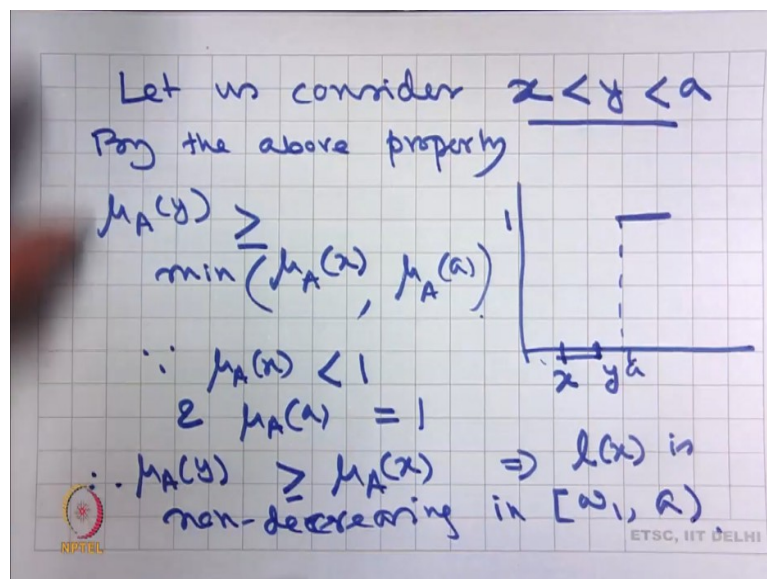 Let us consider x < y < a
By the above property
μ_A(y) ≥
min(μ_A(x), μ_A(a))
∵ μ_A(x) < 1
& μ_A(a) = 1
∴ μ_A(y) ≥ μ_A(x) ⇒ l(x) is
non-decreasing in [ω₁, a).
1
x y a
NPTEL
ETSC, IIT DELHI